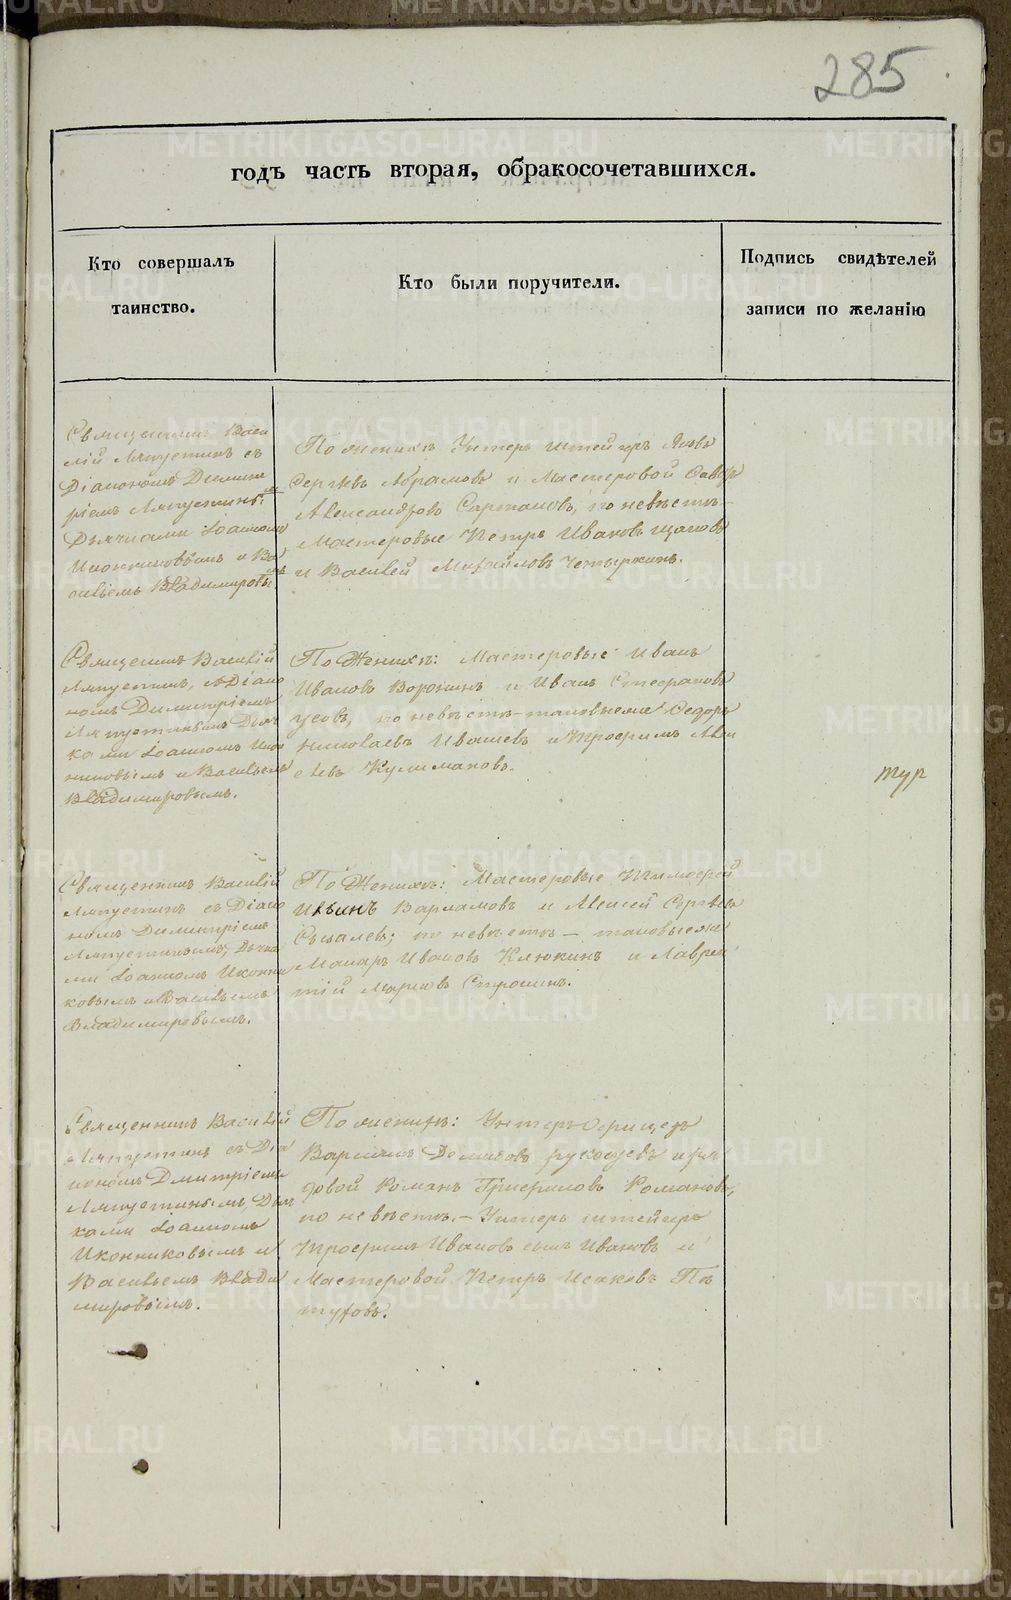 285
годъ часть вторая, обракосочетавшихся.
Кто совершалъ
таинство.
Кто были поручители.
Подпись свидѣтелей
записи по желанію
Священникъ Васи
лій Ляпустинъ съ
Діакономъ Димит
ріемъ Ляпустинымъ
Дьячками Іоанномъ
Иконниковымъ и Ва
сильемъ Владимировымъ
По женихѣ Унтеръ Штейгеръ Яковъ
Сергѣевъ Абрамовъ и Мастеровой
Александровъ по невѣстѣ
Мастеровые Петръ Ивановъ
и Василей Михайловъ Четыркинъ.
Священникъ Василій
Ляпустинъ, съ Діако
номъ Димитріемъ
Ляпустинымъ Дьяч
ками Іоанномъ Икон
никовымъ и Васильемъ
Владимировымъ.
По Женихѣ: Мастеровые Иванъ
Ивановъ Воронинъ и Иванъ Стефановъ
Усовъ, по невѣстѣ - таковыеже Ѳедоръ
Николаевъ Ивашевъ и Трофимъ Алек
сѣевъ Кулимановъ.
тур
Священникъ Василій
Ляпустинъ съ Діако
номъ Димитріемъ
Ляпустинымъ, Дьячка
ми Іоанномъ Иконни
ковымъ и Васильемъ
Владимировымъ.
По Женихѣ: Мастеровые Тимофей
Ильинъ Варламовъ и Алексей Сергѣевъ
по невѣстѣ - таковыеже
Макаръ Ивановъ Клюкинъ и Лаврен
тій Марковъ
Священникъ Василій
Ляпустинъ съ Діа
кономъ Дмитріемъ
Ляпустинымъ, Дьяч
ками Іоанномъ
Иконниковымъ и
Васильемъ Влади
мировымъ.
По женихѣ: Унтеръ Офицеръ
Варламъ и ря
довой Романъ Романовъ,
по невѣстѣ. - Унтеръ штейгеръ
Трофимъ Ивановъ сынъ Ивановъ и
Мастеровой Петръ Исаковъ Пѣ
туховъ.
METRIKI.GASO-URAL.RU